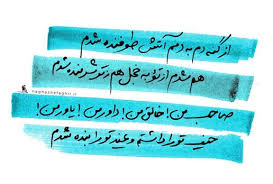 از گنه دم به دمم آتش طوفنده شدم
هم شدم از توبه خجل هم ز تو شرمنده شدم
صاحب من! خالق من! داور من! یاور من!
حیف تو را داشته و غیر تو را بنده شدم